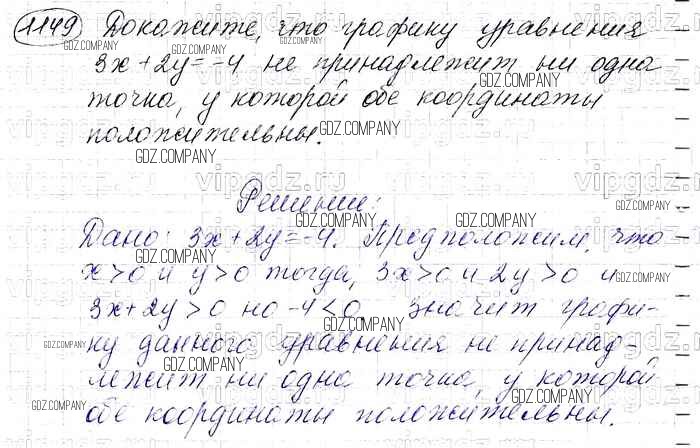 1149 Докажите, что графику уравнения
3x+2y=-4 не принадлежит ни одна
точка, у которой обе координаты
положительны.
Решение:
Дано: 3x+2y=-4. Предположим, что
x>0 и y>0 тогда, 3x>0 и 2y>0 и
3x+2y>0 но -4<0 значит графи-
ку данного уравнения не принад-
лежит ни одна точка, у которой
обе координаты положительны.